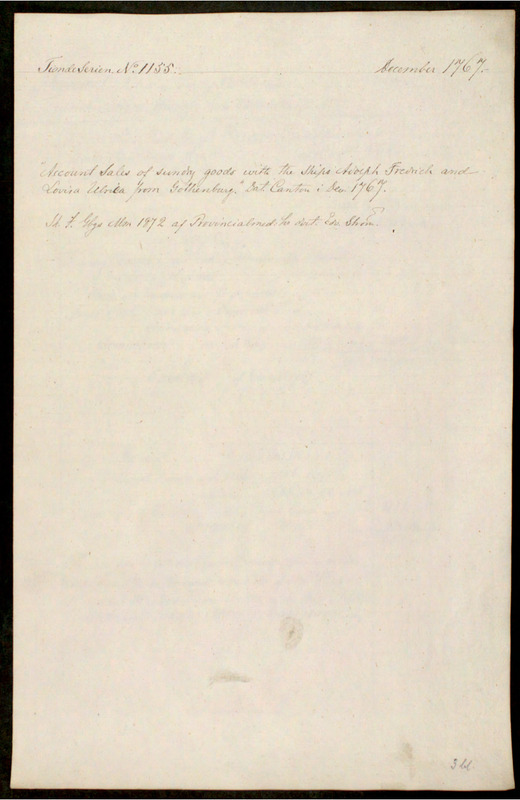 Tionde Serien. No. 1155.
December 1767.
"Account Sales of sundry goods with the Ships Adolph Fredrich and
Lovisa Ulrica from Gothenburg." Dat. Canton i Dec. 1767.
1872 af Provincialmed:
3 bl.